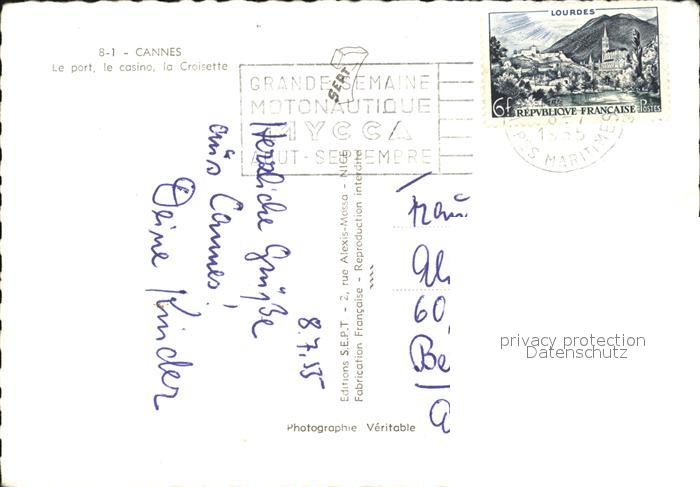 8-1 - CANNES
Le port, le casino, la Croisette
SEPT
GRANDE SEMAINE
MOTONAUTIQUE
MYCCA
AOUT - SEPTEMBRE
LOURDES
6f RÉPUBLIQUE FRANÇAISE POSTES
1955
MARITIMES
8.7.55
Herzliche Grüße
aus Cannes!
Deine Kinder
Editions S.E.P.T - 2, rue Alexis-Mossa - NICE
Fabrication Française - Reproduction interdite
60
Be
privacy protection
Datenschutz
Photographie Véritable